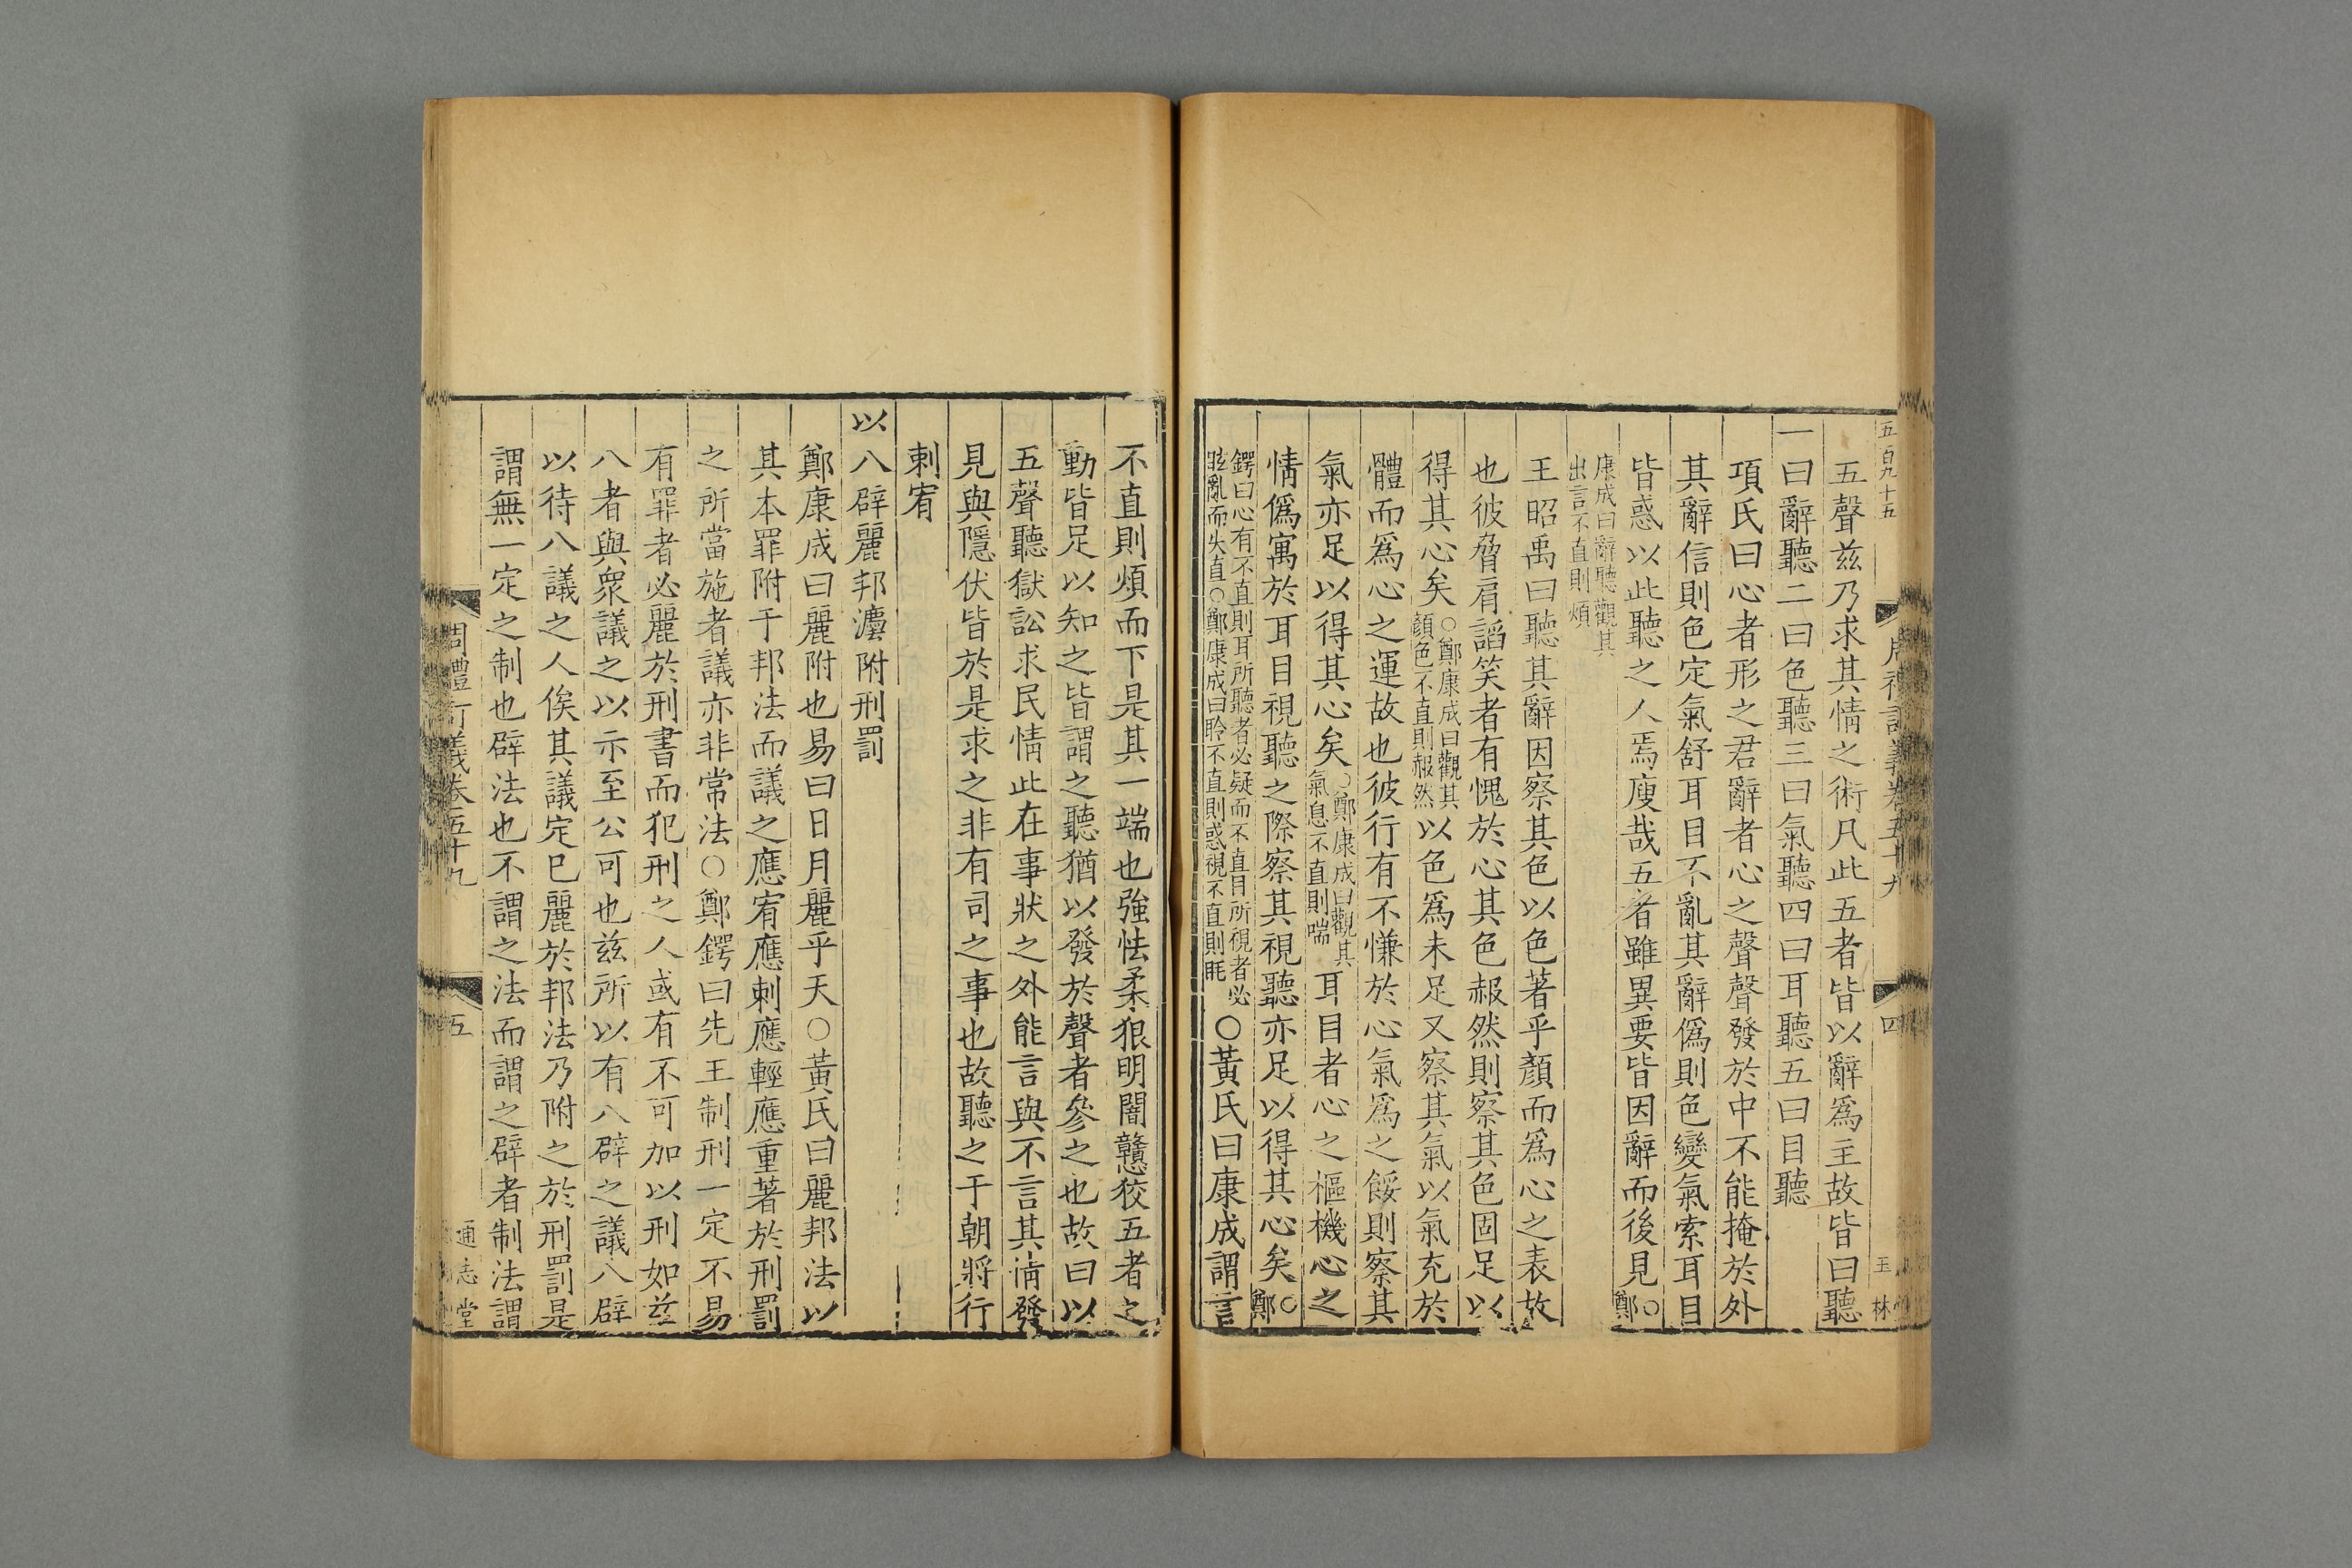 五百九十五
周禮訂義卷五十九
四
王林
五聲兹乃求其情之術凡此五者皆以辭爲主故皆曰聽
一曰辭聽二曰色聽三曰氣聽四曰耳聽五曰目聽
項氏曰心者形之君辭者心之聲聲發於中不能掩於外
其辭信則色定氣舒耳目不亂其辭僞則色變氣索耳目
皆惑以此聽之人焉廋哉五者雖異要皆因辭而後見○鄭
康成曰辭聽觀其
出言不直則煩
王昭禹曰聽其辭因察其色以色著乎顏而爲心之表故
也彼脅肩諂笑者有愧於心其色赧然則察其色固足以
得其心矣○鄭康成曰觀其顏色不直則赧然以色爲未足又察其氣以氣充於
體而爲心之運故也彼行有不慊於心氣爲之餒則察其
氣亦足以得其心矣○鄭康成曰觀其氣息不直則喘耳目者心之樞機心之
情僞寓於耳目視聽之際察其視聽亦足以得其心矣○鄭
鍔曰心有不直則耳所聽者必疑而不直目所視者必
眩亂而失直○鄭康成曰聆不直則惑視不直則眊○黃氏曰康成謂言
不直則煩而下是其一端也強怯柔狠明闇戇狡五者之
動皆足以知之皆謂之聽猶以發於聲者參之也故曰以
五聲聽獄訟求民情此在事狀之外能言與不言其情發
見與隱伏皆於是求之非有司之事也故聽之于朝將行
刺宥
以八辟麗邦灋附刑罰
鄭康成曰麗附也易曰日月麗乎天○黃氏曰麗邦法以
其本罪附于邦法而議之應宥應刺應輕應重著於刑罰
之所當施者議亦非常法○鄭鍔曰先王制刑一定不易
有罪者必麗於刑書而犯刑之人或有不可加以刑如兹
八者與衆議之以示至公可也兹所以有八辟之議八辟
以待八議之人俟其議定巳麗於邦法乃附之於刑罰是
謂無一定之制也辟法也不謂之法而謂之辟者制法謂
周禮訂義卷五十九
五
通志堂